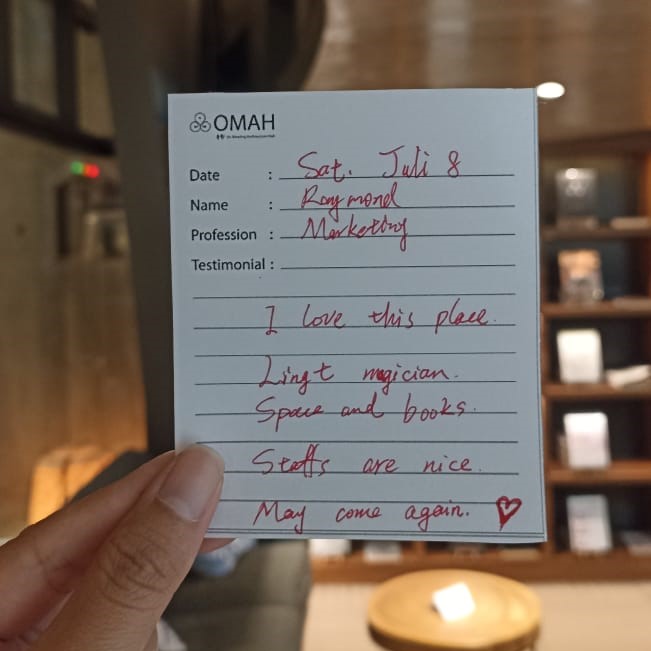 OMAH
Date : Sat. Juli 8
Name : Raymond
Profession : Marketing
Testimonial :
I love this place.
Lingt magician.
Space and books.
Staffs are nice.
May come again.